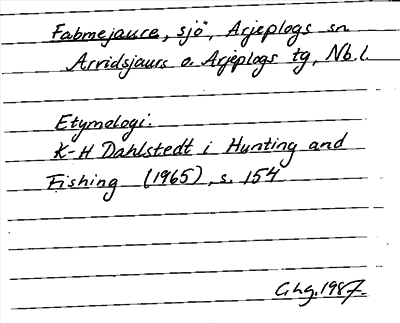 Fabmejaure, sjö, Arjeplogs sn
Arvidsjaurs o. Arjeplogs tg, Nb.l.
Etymologi:
K-H Dahlstedt i Hunting and
Fishing (1965), s. 154
Chg. 1987.